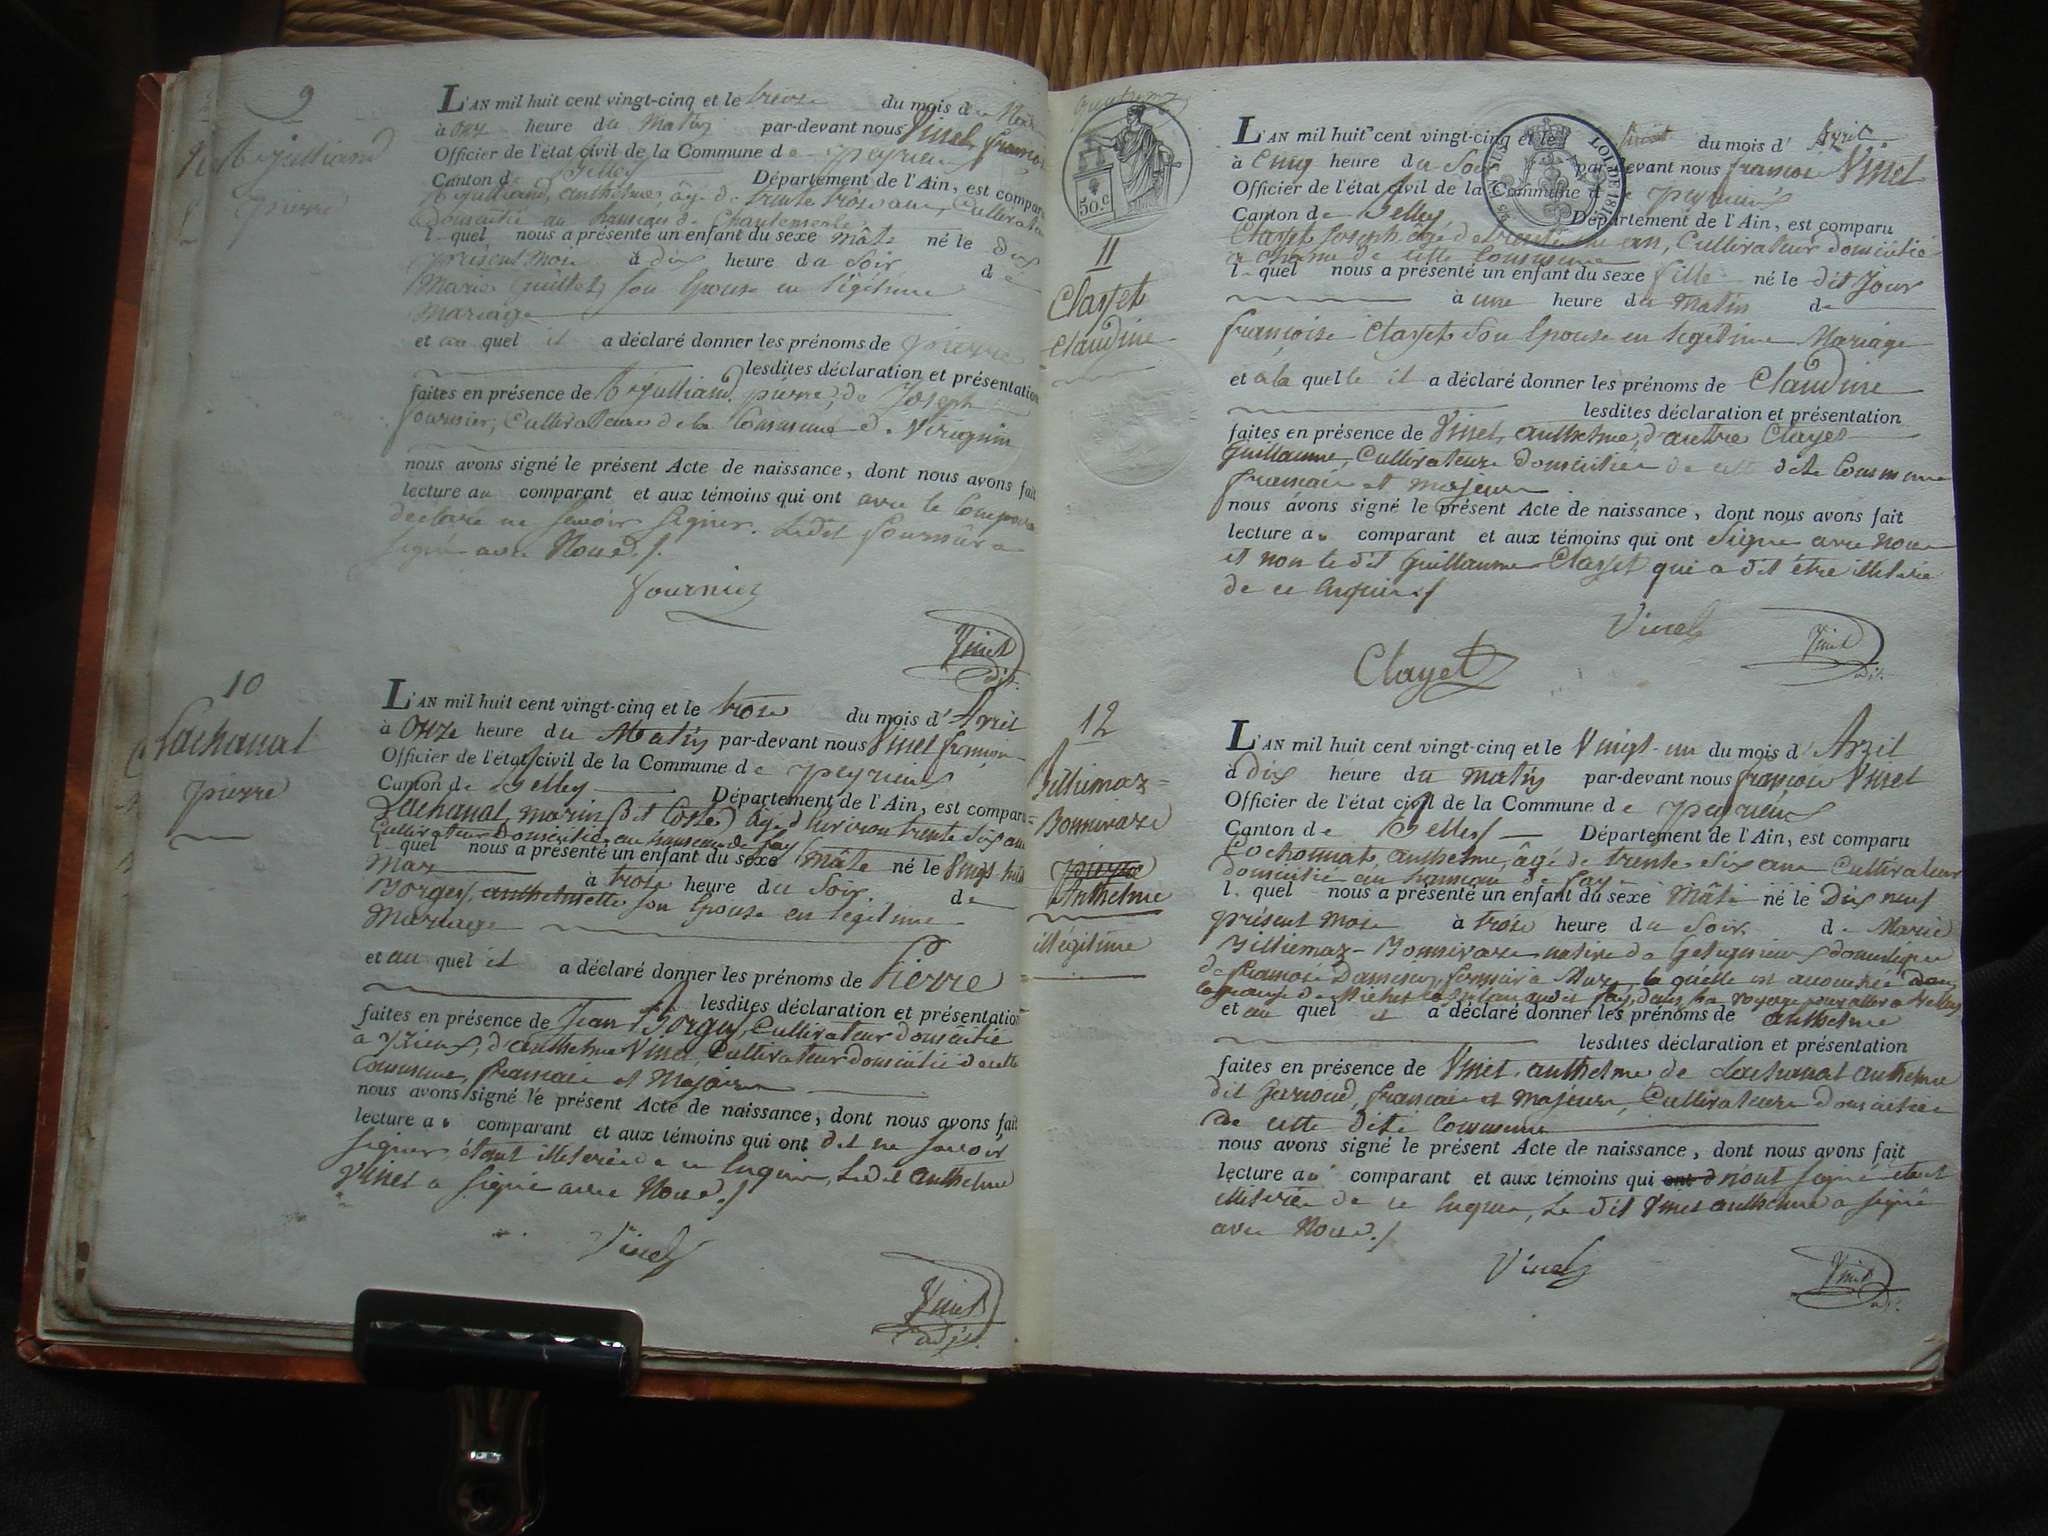 9
pierre
L'AN mil huit cent vingt-cinq et le treize du mois d
à onze heure du Matin par-devant nous Vinet françois
Officier de l'état civil de la Commune de peyrieu
Canton de Belley Département de l'Ain, est comparu
anthelme, âgé de trente trois ans, Cultivateur
Domicilié au hameau de Chantemerle
l quel nous a présenté un enfant du sexe mâle né le Dix
présent mois à dix heure du Soir de
Marie Guillet, son Epouse en légitime
Mariage
et au quel il a déclaré donner les prénoms de pierre
lesdites déclaration et présentation
faites en présence de pierre, de Joseph
fournier, Cultivateurs de la Commune de
nous avons signé le présent Acte de naissance, dont nous avons fait
lecture au comparant et aux témoins qui ont avec le Comparant
déclaré ne Savoir Signer. Ledit fournier a
signé avec Nous./.
fournier
Vinet
adjt.
10
Lachanal
pierre
L'AN mil huit cent vingt-cinq et le trois du mois d'Avril
à Onze heure du Matin par-devant nous Vinet françois
Officier de l'état civil de la Commune de peyrieu
Canton de Belley Département de l'Ain, est comparu
Lachanal, marin (dit Coste) âgé d'environ trente Six ans
Cultivateur Domicilié au hameau de fay
l quel nous a présenté un enfant du sexe Mâle né le Vingt huit
Mars à trois heure du Soir de
Borgey, anthelmette son Epouse en légitime
Mariage
et au quel il a déclaré donner les prénoms de Pierre
lesdites déclaration et présentation
faites en présence de Jean Borgey, Cultivateur Domicilié
à d'anthelme Vinet, Cultivateur domicilié de cette
Commune, français et Majeurs
nous avons signé le présent Acte de naissance, dont nous avons fait
lecture au comparant et aux témoins qui ont dit ne savoir
signer, étant illiterés de ce Enquis, Ledit anthelme
Vinet a signé avec Nous./
Vinet
Vinet
adjt.
50.C
11
Clayet
Claudine
LOI DE 1816
L'AN mil huit cent vingt-cinq et le du mois d' Avril
à Cinq heure du Soir par-devant nous françois Vinet
Officier de l'état civil de la Commune de peyrieu
Canton de Belley Département de l'Ain, est comparu
Clayet Joseph, âgé de trente un an, Cultivateur domicilié
de cette Commune
l quel nous a présenté un enfant du sexe fille né le dit Jour
à une heure du Matin de
françoise Clayet son Epouse en légitime Mariage
et à la quelle il a déclaré donner les prénoms de Claudine
lesdites déclaration et présentation
faites en présence de Vinet, anthelme, d'autre Clayet
Guillaume, Cultivateurs domiciliés de cette dite Commune
français et majeurs
nous avons signé le présent Acte de naissance, dont nous avons fait
lecture au comparant et aux témoins qui ont signé avec Nous
et non le dit Guillaume Clayet qui a dit être illiteré
de ce Enquis./
Vinet
Vinet
adjt.
Clayet
12
Billiemaz
Bonnivars
pierre
Anthelme
illégitime
L'AN mil huit cent vingt-cinq et le Vingt-un du mois d'Avril
à dix heure du matin par-devant nous françois Vinet
Officier de l'état civil de la Commune de peyrieu
Canton de Belley Département de l'Ain, est comparu
Cochonnat, anthelme, âgé de trente-Six ans Cultivateur
domicilié au hameau de fay
l quel nous a présenté un enfant du sexe Mâle né le Dix neuf
présent mois à trois heure du Soir de Marie
Billiemaz-Bonnivars native de domestique
de françois fermier à la quelle est accouchée dans
la grange de Michel audit fay, dans sa voyage pour aller à Belley
et au quel il a déclaré donner les prénoms de anthelme
lesdites déclaration et présentation
faites en présence de Vinet, anthelme de Lachanal anthelme
dit français et majeurs, Cultivateurs domiciliés
de cette dite Commune
nous avons signé le présent Acte de naissance, dont nous avons fait
lecture au comparant et aux témoins qui ont n'ont signé étant
illiterés de ce Enquis, Le dit Vinet anthelme a signé
avec Nous./
Vinet
Vinet
adjt.